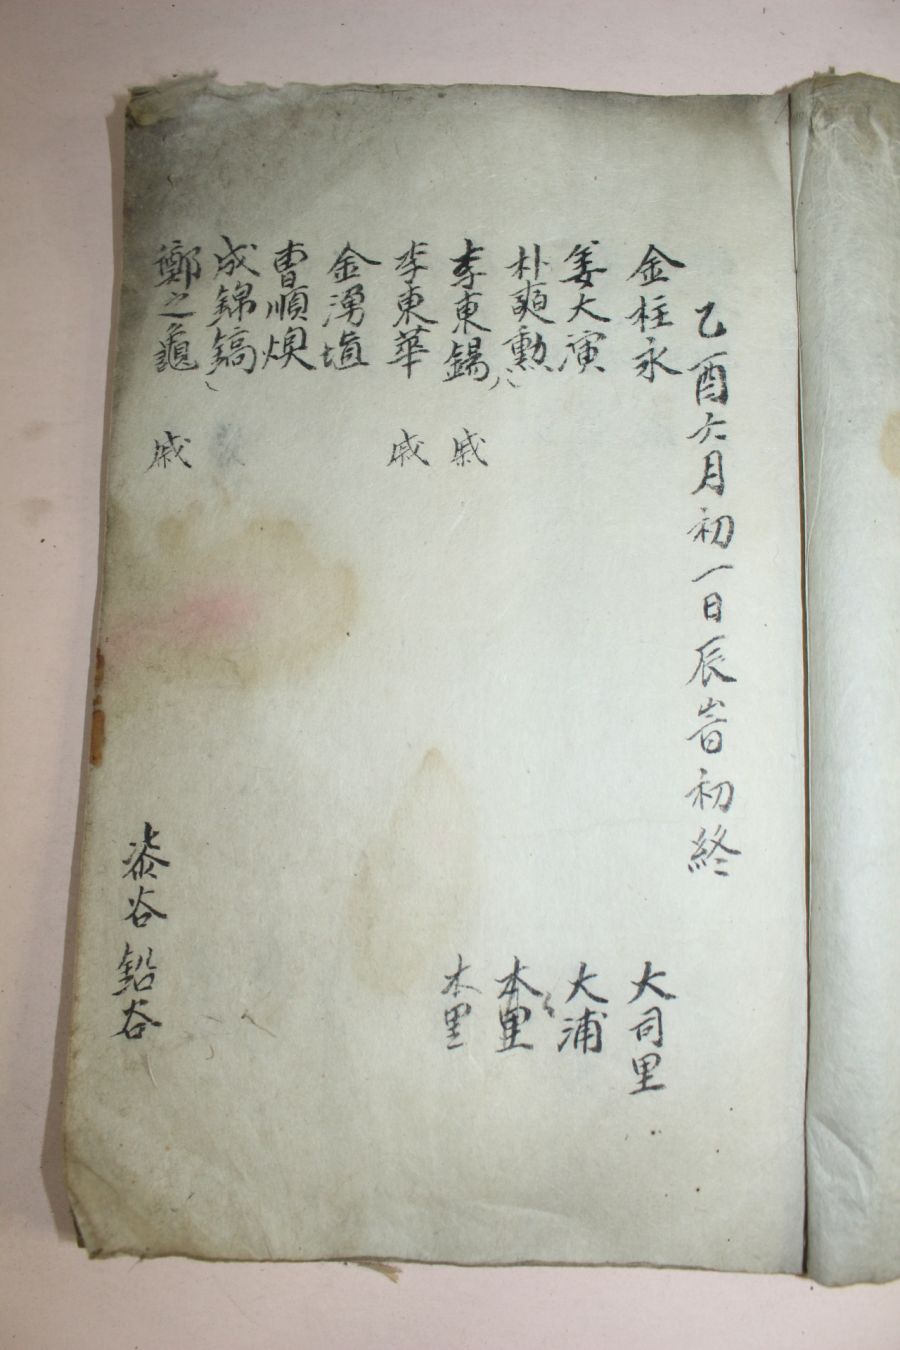 乙酉六月初一日辰旹初終
金柱永 大司里
姜大演 大浦
朴奭勳 本里
李東錫 戚 本里
李東華 戚
金湧埴
曺順煥
成錦鎬
鄭之龜 戚 柒谷鉛谷